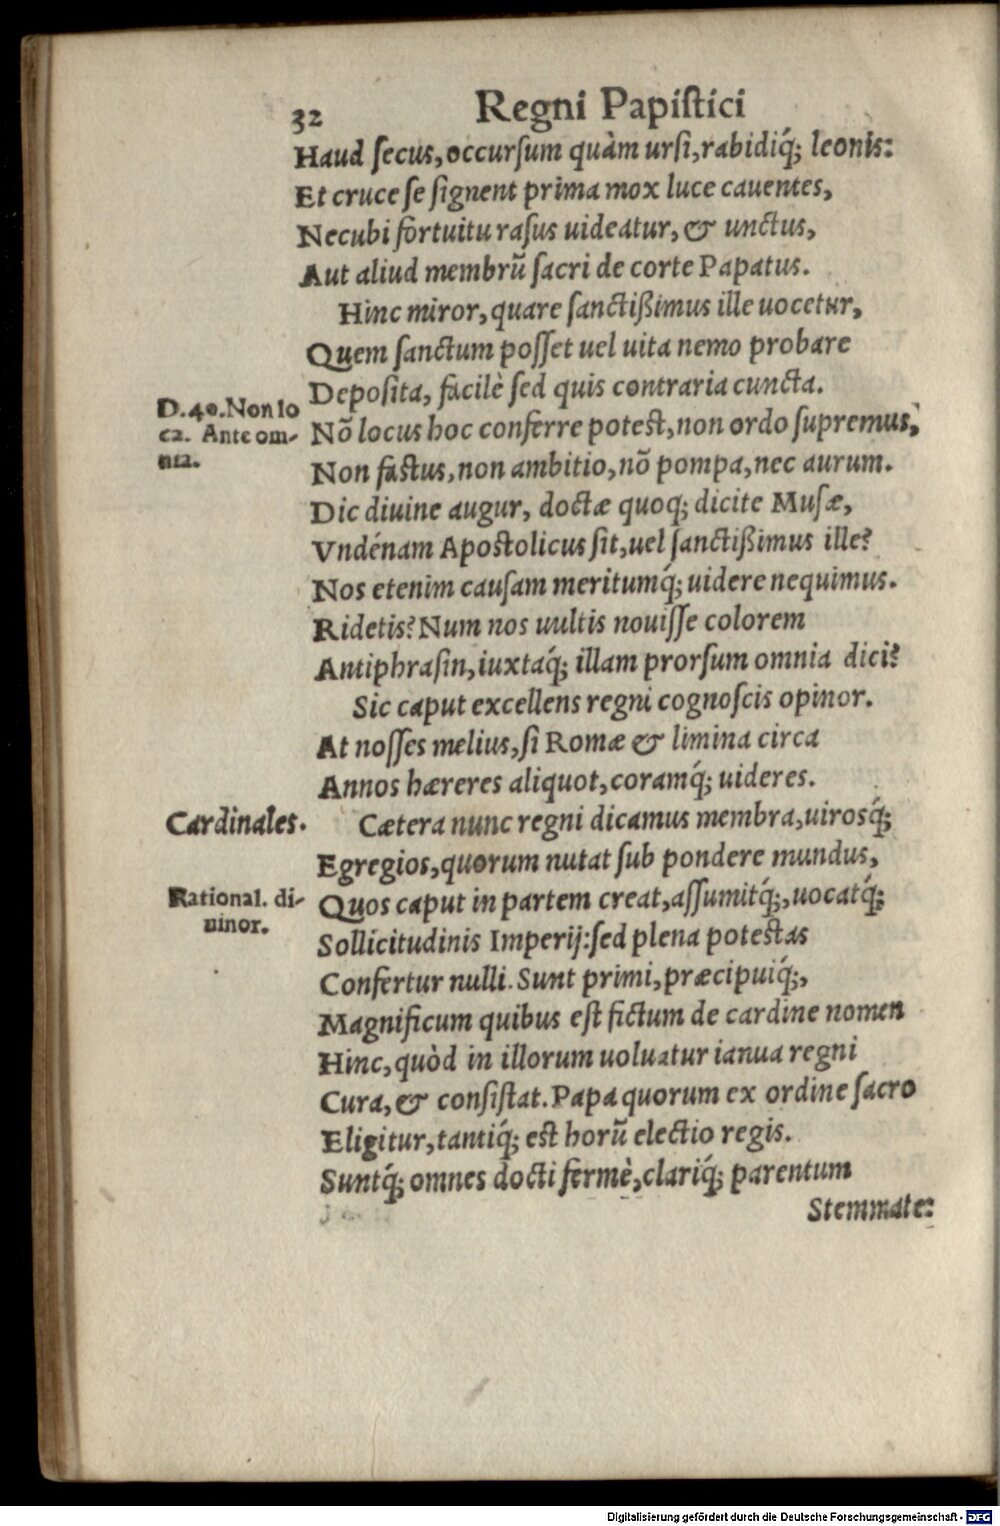 32
Regni Papiſtici
Haud ſecus, occurſum quàm urſi, rabidiq́; leonis:
Et cruce ſe ſignent prima mox luce cauentes,
Necubi fortuitu raſus uideatur, & unctus,
Aut aliud membrũ ſacri de corte Papatus.
Hinc miror, quare ſanctißimus ille uocetur,
Quem ſanctum poſſet uel uita nemo probare
Depoſita, facilè ſed quis contraria cuncta.
D.40.Non lo
ca. Ante om-
nia.
Nõ locus hoc conferre poteſt, non ordo ſupremus,
Non faſtus, non ambitio, nõ pompa, nec aurum.
Dic diuine augur, doctæ quoq; dicite Muſæ,
Vndénam Apoſtolicus ſit, uel ſanctißimus ille?
Nos etenim cauſam meritumq́; uidere nequimus.
Ridetis? Num nos uultis nouiſſe colorem
Antiphraſin, iuxtaq́; illam prorſum omnia dici?
Sic caput excellens regni cognoſcis opinor.
At noſſes melius, ſi Romæ & limina circa
Annos hæreres aliquot, coramq́; uideres.
Cardinales.
Cætera nunc regni dicamus membra, uirosq́;
Egregios, quorum nutat ſub pondere mundus,
Rational. di-
uinor.
Quos caput in partem creat, aſſumitq́;, uocatq́;
Sollicitudinis Imperij: ſed plena poteſtas
Confertur nulli. Sunt primi, præcipuiq́;,
Magnificum quibus eſt fictum de cardine nomen
Hinc, quòd in illorum uoluatur ianua regni
Cura, & conſiſtat. Papa quorum ex ordine ſacro
Eligitur, tantiq́; eſt horũ electio regis.
Suntq́; omnes docti fermè, clariq́; parentum
Stemmate:
Digitalisierung gefördert durch die Deutsche Forschungsgemeinschaft - DFG